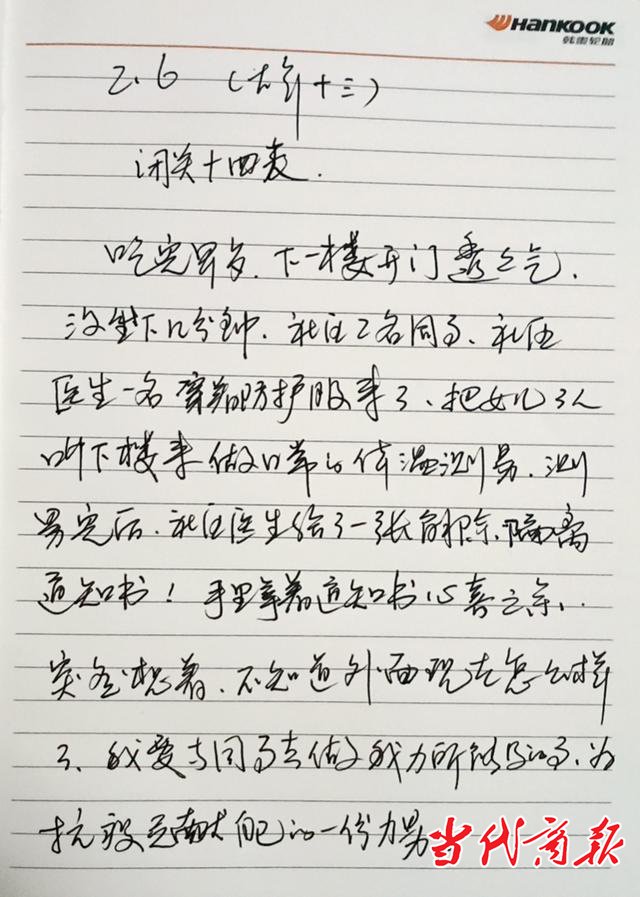 HANKOOK
韩泰轮胎
2.6 (古斤十三)
闭关十四天.
吃完早歺.下一楼开门透透气.
没坐下几分钟.社区2名同事、社区
医生一名穿着防护服来了、把女儿3人
叫下楼来做日常的体温测量.测
量完后.社区医生给了一张解除隔离
通知书!手里拿着通知书心喜之余、
突然想着.不知道外面现在怎么样
了、我要与同事去做我力所能及的事、为
抗疫贡献自己的一份力量
当代商报